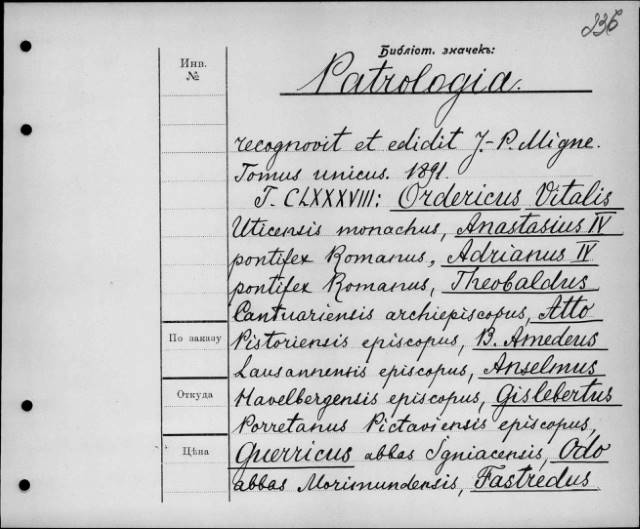 236
Библіот. значекъ:
Инв.
№
Patrologia.
recognovit et edidit J.-P. Migne.
Tomus unicus. 1891.
T. CLXXXVIII: Ordericus Vitalis
Uticensis monachus, Anastasius IV
pontifex Romanus, Adrianus IV
pontifex Romanus, Theobaldus
Cantuariensis archiepiscopus, Atto
По заказу
Pistoriensis episcopus, B. Amedeus
Lausannensis episcopus, Anselmus
Откуда
Havelbergensis episcopus, Gislebertus
Porretanus Pictaviensis episcopus,
Цѣна
Guerricus abbas Igniacensis, Odo
abbas Morimundensis, Fastredus